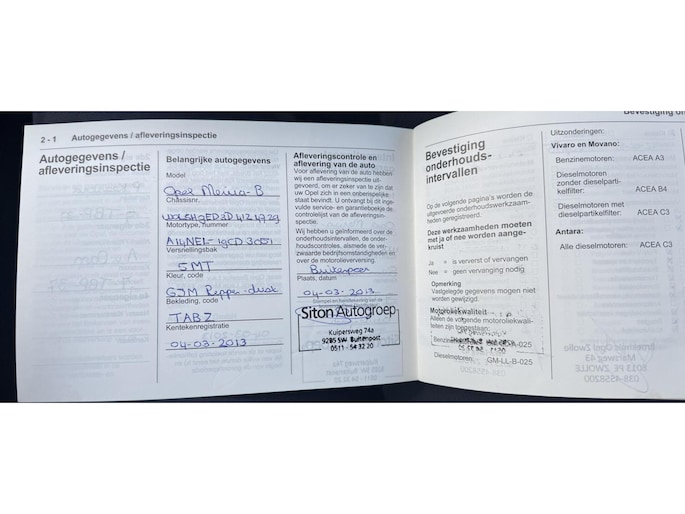 2 - 1 Autogegevens / afleveringsinspectie
Autogegevens /
afleveringsinspectie
Belangrijke autogegevens
Model
Opel Meriva-B
Chassisnr.
Motortype, nummer
A14NEL-
Versnellingsbak
5MT
Kleur, code
Bekleding, code
TABZ
Kentekenregistratie
04-03-2013
Afleveringscontrole en
aflevering van de auto
Voor aflevering van de auto hebben
wij een afleveringsinspectie uit-
gevoerd, om er zeker van te zijn dat
uw Opel zich in een onberispelijke
staat bevindt. U ontvangt bij de inge-
vulde service- en garantieboekje de
controlelijst van de afleveringsin-
spectie.
Wij hebben u geïnformeerd over de
onderhoudsintervallen, de onder-
houdscontroles, alsmede de ver-
zwaarde bedrijfsomstandigheden en
over de motorolieverversing.
Buitenpost
Plaats, datum
04-03-2013
Stempel en handtekening van de
Siton Autogroep
Kuipersweg 74a
9285 SW Buitenpost
0511 - 54 32 20
Bevestiging
Bevestiging
onderhouds-
intervallen
Op de volgende pagina's worden de
uitgevoerde onderhoudswerkzaam-
heden geregistreerd.
Deze werkzaamheden moeten
met ja of nee worden aange-
kruist
Ja = is ververst of vervangen
Nee = geen vervanging nodig
Opmerking
Vastgelegde gegevens mogen niet
worden gewijzigd.
Motoroliekwaliteit
Alleen de volgende motoroliekwali-
teiten zijn toegestaan:
Dieselmotoren: GM-LL-B-025
Uitzonderingen:
Vivaro en Movano:
Benzinemotoren: ACEA A3
Dieselmotoren
zonder dieselparti-
kelfilter: ACEA B4
Dieselmotoren met
dieselpartikelfilter: ACEA C3
Antara:
Alle dieselmotoren: ACEA C3